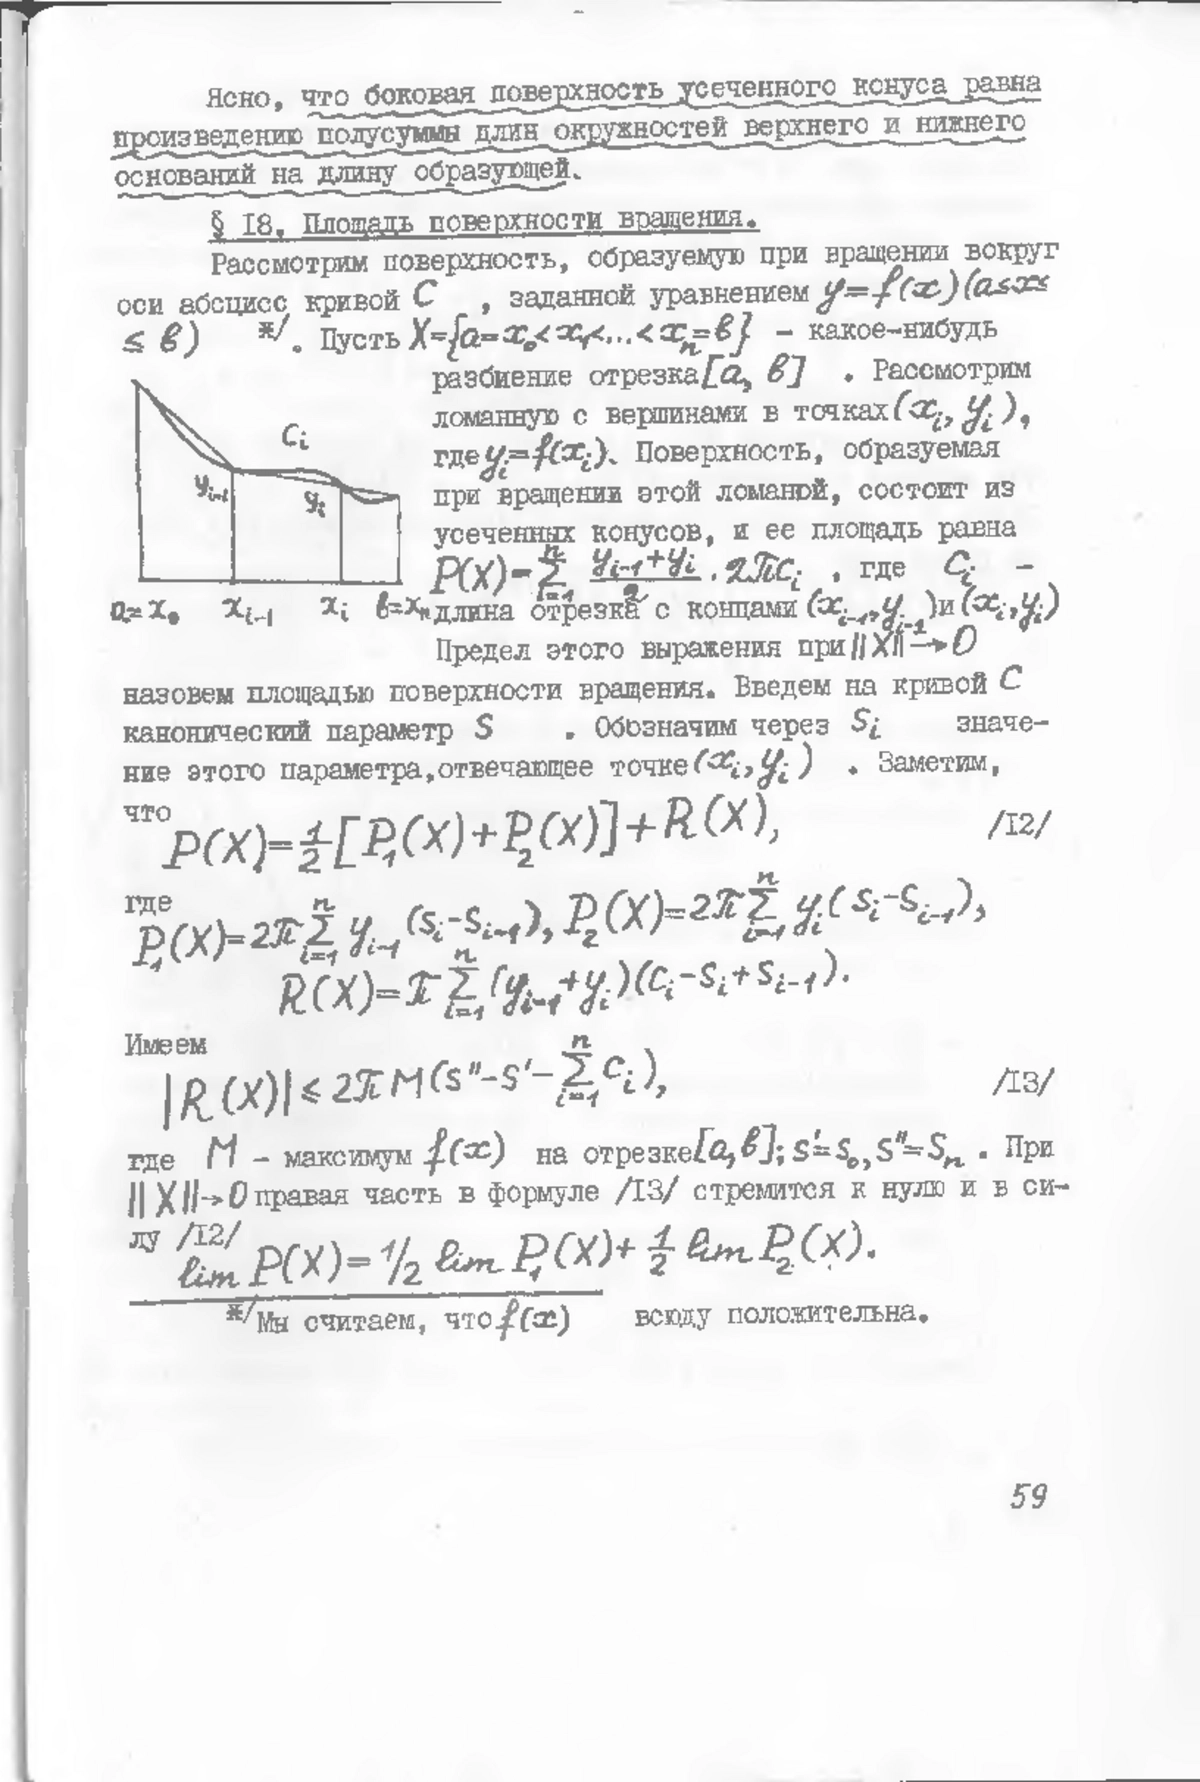 Ясно, что боковая поверхность усеченного конуса равна
произведению полусуммы длин окружностей верхнего и нижнего
оснований на длину образующей.
§ 18. Площадь поверхности вращения.
Рассмотрим поверхность, образуемую при вращении вокруг
оси абсцисс кривой C , заданной уравнением y=f(x)(a≤x≤
≤ b) ж/. Пусть X={a=x₀<x₁<...<xₙ=b} - какое-нибудь
разбиение отрезка[a, b] . Рассмотрим
ломанную с вершинами в точках(xᵢ, yᵢ),
где yᵢ=f(xᵢ). Поверхность, образуемая
при вращении этой ломаной, состоит из
усеченных конусов, и ее площадь равна
P(X)=∑ⁿᵢ₌₁ (yᵢ₋₁+yᵢ)/2 · 2πCᵢ , где Cᵢ -
длина отрезка с концами (xᵢ₋₁,yᵢ₋₁)и(xᵢ,yᵢ)
Cᵢ
yᵢ₋₁
yᵢ
a=x₀ xᵢ₋₁ xᵢ b=xₙ
Предел этого выражения при ||X||→0
назовем площадью поверхности вращения. Введем на кривой C
канонический параметр S . Обозначим через Sᵢ значе-
ние этого параметра,отвечающее точке(xᵢ,yᵢ) . Заметим,
что
P(X)=½[P₁(X)+P₂(X)]+R(X), /12/
где
P₁(X)=2π∑ⁿᵢ₌₁ yᵢ₋₁(sᵢ-sᵢ₋₁), P₂(X)=2π∑ⁿᵢ₌₁ yᵢ(sᵢ-sᵢ₋₁),
R(X)=π∑ⁿᵢ₌₁(yᵢ₋₁+yᵢ)(cᵢ-sᵢ+sᵢ₋₁).
Имеем
|R(X)|≤2πM(s"-s'-∑ⁿᵢ₌₁cᵢ), /13/
где M - максимум f(x) на отрезке[a,b]; s'=s₀,s"=sₙ . При
||X||→0 правая часть в формуле /13/ стремится к нулю и в си-
лу /12/
lim P(X)=1/2 lim P₁(X)+½ lim P₂(X).
ж/Мы считаем, что f(x) всюду положительна.
59